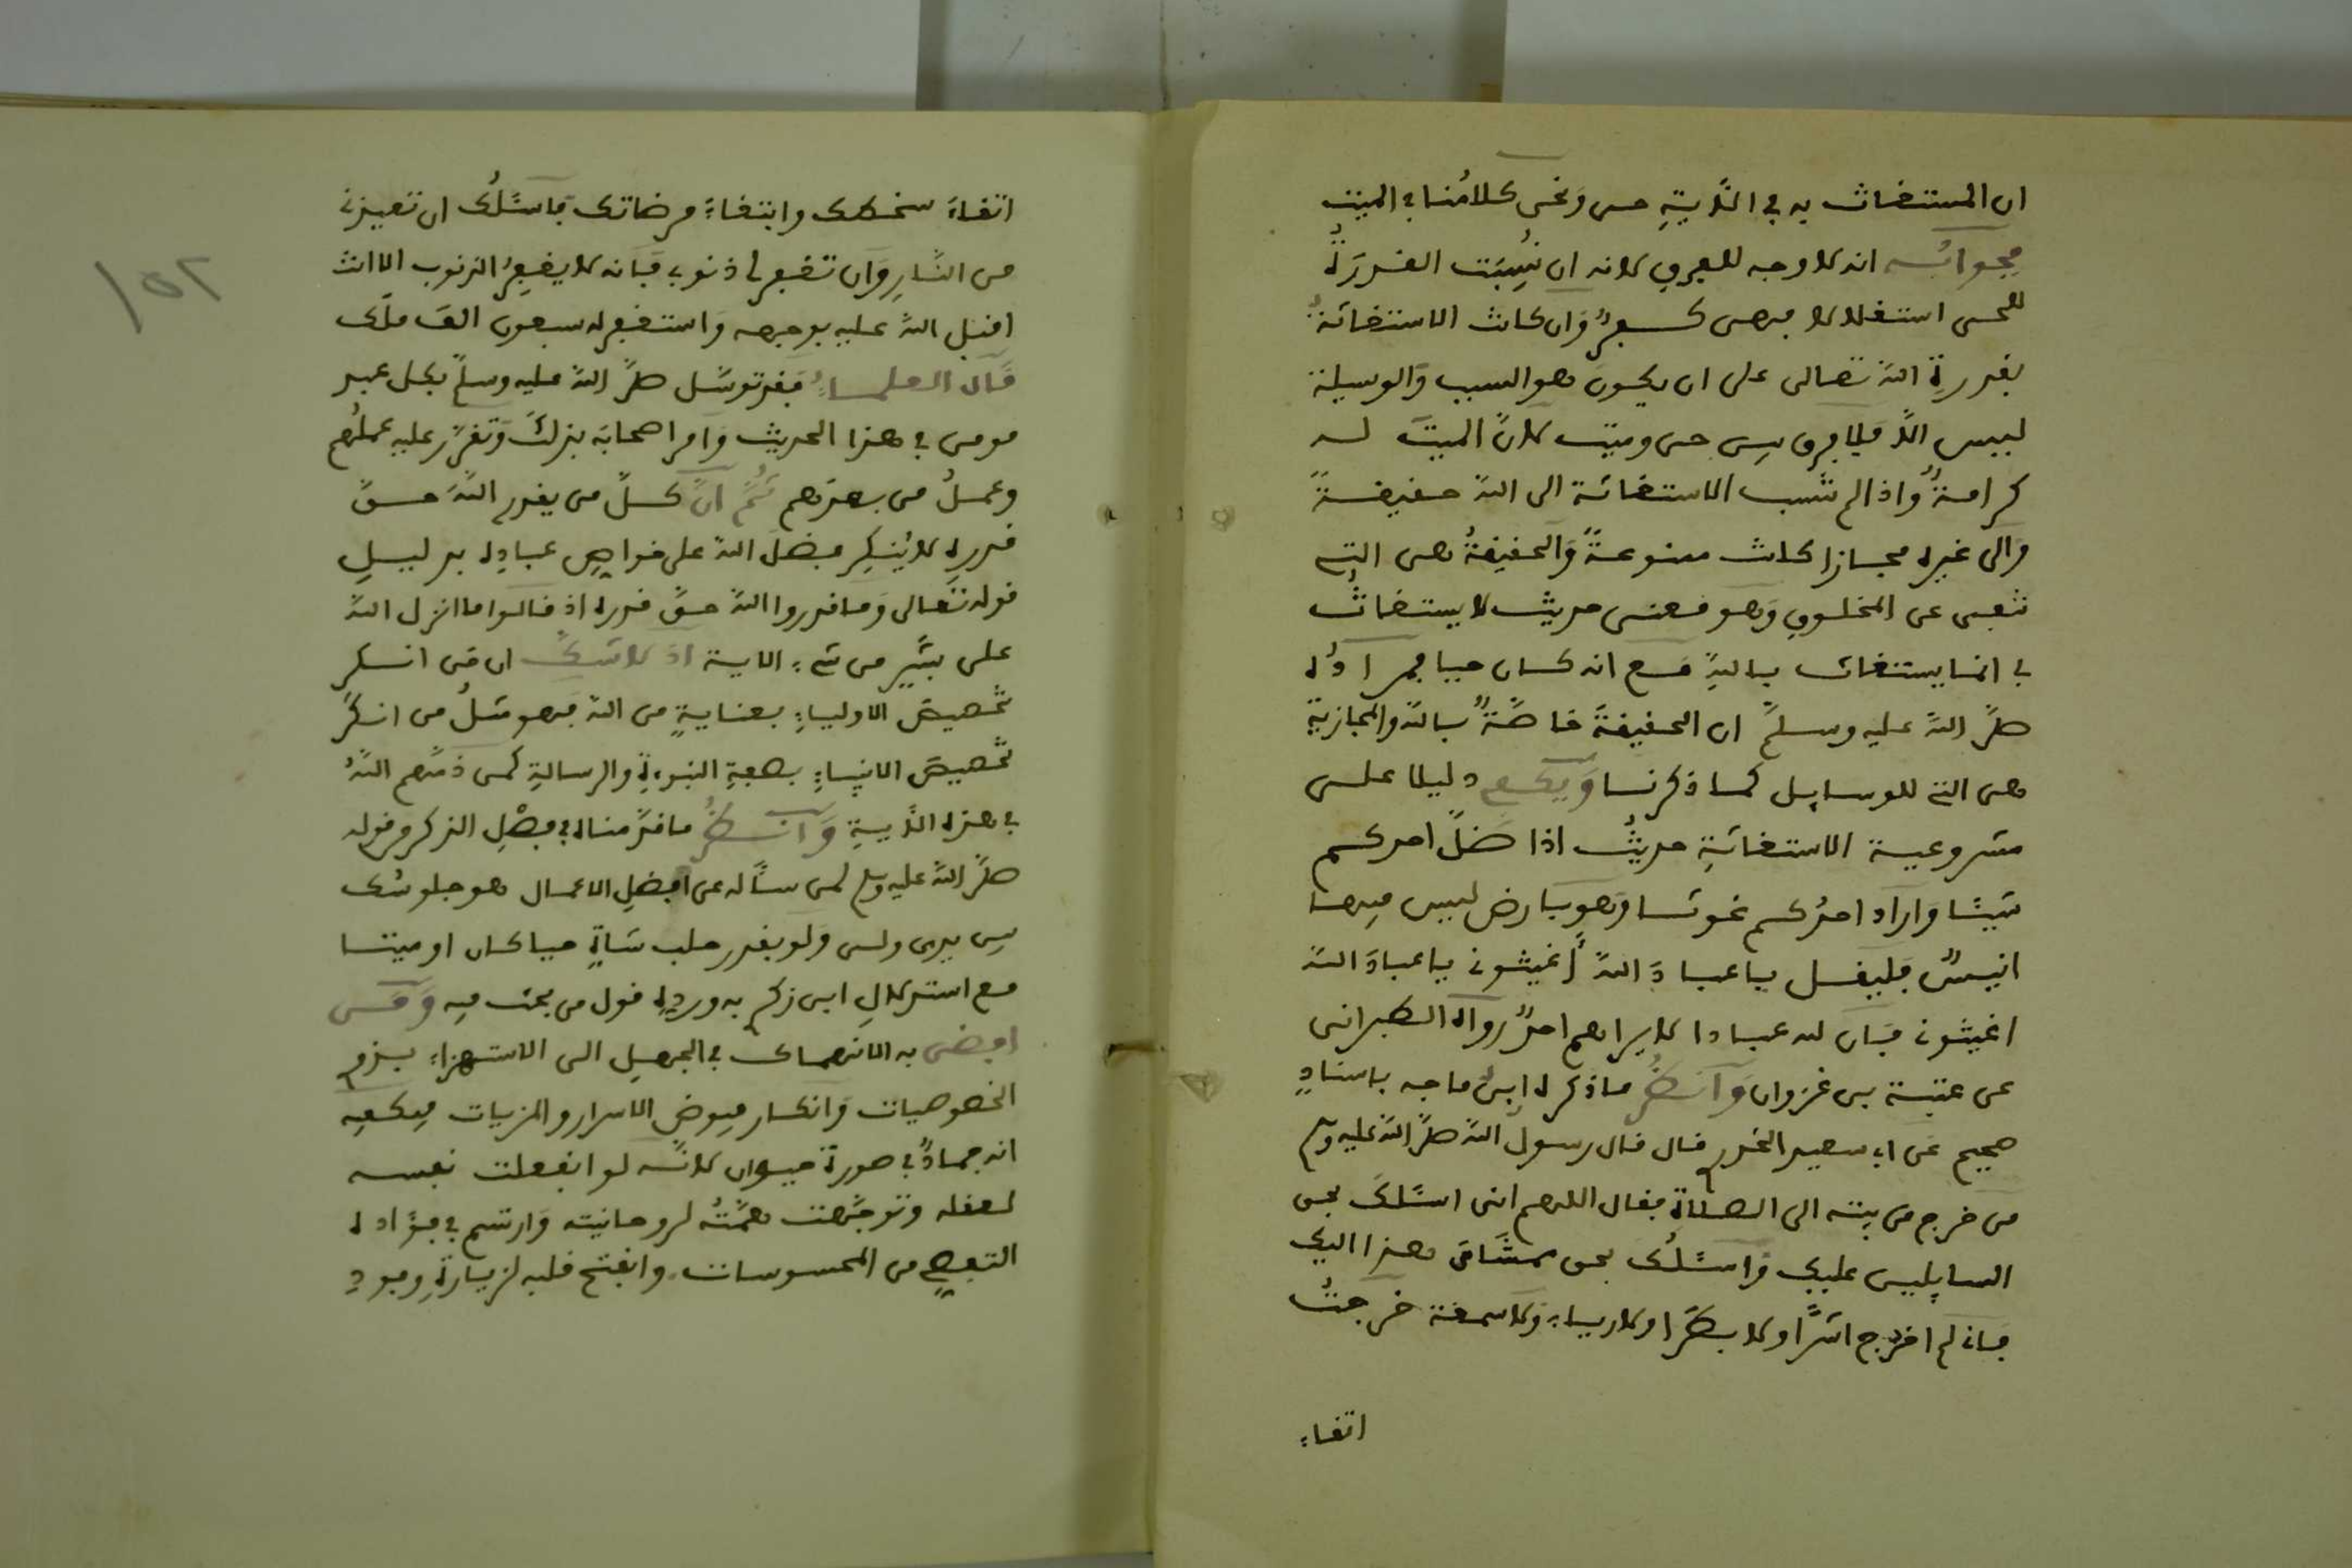 ان المستغاث به في الآيةِ حى ونحن كلامُنا في الميت
فجوابُه انه لا وجه للفرق لانه ان نُسِبَت القدرَةُ
للحى استقلالا فهى كفرٌ وَان كانت الاستغاثةُ
بقدرةِ اللهِ تعالى على ان يكونَ هو السبب وَالوسيلة
ليس الّا فلا فرق بين حى وميت لانّ الميتَ له
كرامةٌ وَاذا لم تنسب الاستغاثة الى الله حقيقةً
وَالى غيره مجازا كانت ممنوعةً وَالحقيقةُ هى التى
تنفى عن المخلوق وَهو معنى حديث لا يستغاثُ
بي انما يستغاث باللهِ مع انه كان حيا فمرادُه
صلَّى اللهُ عليه وسلمَ ان الحقيقةَ خاصَّةٌ باللهِ والمجازية
هى التى للوسايل كما ذكرنا وَيكفى دليلا على
مشروعية الاستغاثةِ حديثُ اذا ضلَّ احدكم
شيئا وَاراد احدُكم غوثا وَهو بارض ليس فيها
انيسٌ فليقل يا عبادَ اللهِ أغيثونى يا عبادَ اللهِ
اغيثونى فان لله عبادا لا يراهم احدٌ رواه الطبرانى
عن عتبة بن غزوان وَانظُر ما ذكره ابنُ ماجه باسنادٍ
صحيح عن ابى سعيد الخدرى قال قال رسول الله صلى الله عليه وسلم
من خرج من بيته الى الصلاة فقال اللهم انى اسئلكَ بحق
السايلين عليك وَاسئلُك بحق ممشاىَ هذا اليك
فانى لم اخرج اشَرًا ولا بطَرًا ولا رياء وَلا سمعة خرجتُ
اتقاءَ
اتقاءَ سخطك وابتغاءَ مرضاتك فاسئلُك ان تعيذنى
من النّارِ وَان تغفر لى ذنوبى فانه لا يغفِرُ الذنوب الا انت
اقبل اللهُ عليه بوجهه وَاستغفر له سبعون الفَ ملَك
قال العلماءُ فقد توسّل صلَّى الله عليه وسلمَ بكل عبد
مومن في هذا الحديث وَامر اصحابَه بذلك وَتقرّر عليه عملُهم
وعملُ من بعدَهم ثُمَّ انَّ كلَّ من يقدر اللهَ حقَّ
قدرِه لا يُنكِر فضلَ الله على خواصِ عبادِه بدليلِ
قوله تعالى وَما قدروا اللهَ حقَّ قدره اذ قالوا ما انزل الله
على بشَرٍ من شىءٍ الاية اذ لا شكَّ ان من انكر
تخصيصَ الاولياءِ بعنايةٍ من الله فهو مثلُ من انكرَ
تخصيصَ الانبياءِ بصفةِ النبوءةِ والرسالةِ كمن ذمّهم اللهُ
في هذه الآيةِ وَانظُرْ ما قدّمناه في فضْلِ الذكر وَقوله
صلَّى الله عليه وسلم لمن سأله عن افضلِ الاعمال هو جلوسُك
بين يدى ولى وَلو بقدر حلب شاةٍ حيا كان او ميتا
مع استدلالِ ابن زكرى به وردِه قول من بحث فيه وَمَن
افضى به الانهماك في الجهلِ الى الاستهزاءِ بذوى
الخصوصيات وَانكار فيوضِ الاسرار والمزيات فيكفيه
انه جمادٌ في صورة حيوان لانّه لو انفعلت نفسه
لعقله وتوجّهت همّتُه لروحانيته وَارتسم في فؤاده
التفصى من المحسوسات وانفتح قلبه لزيارةِ وجودِ
١٥٢